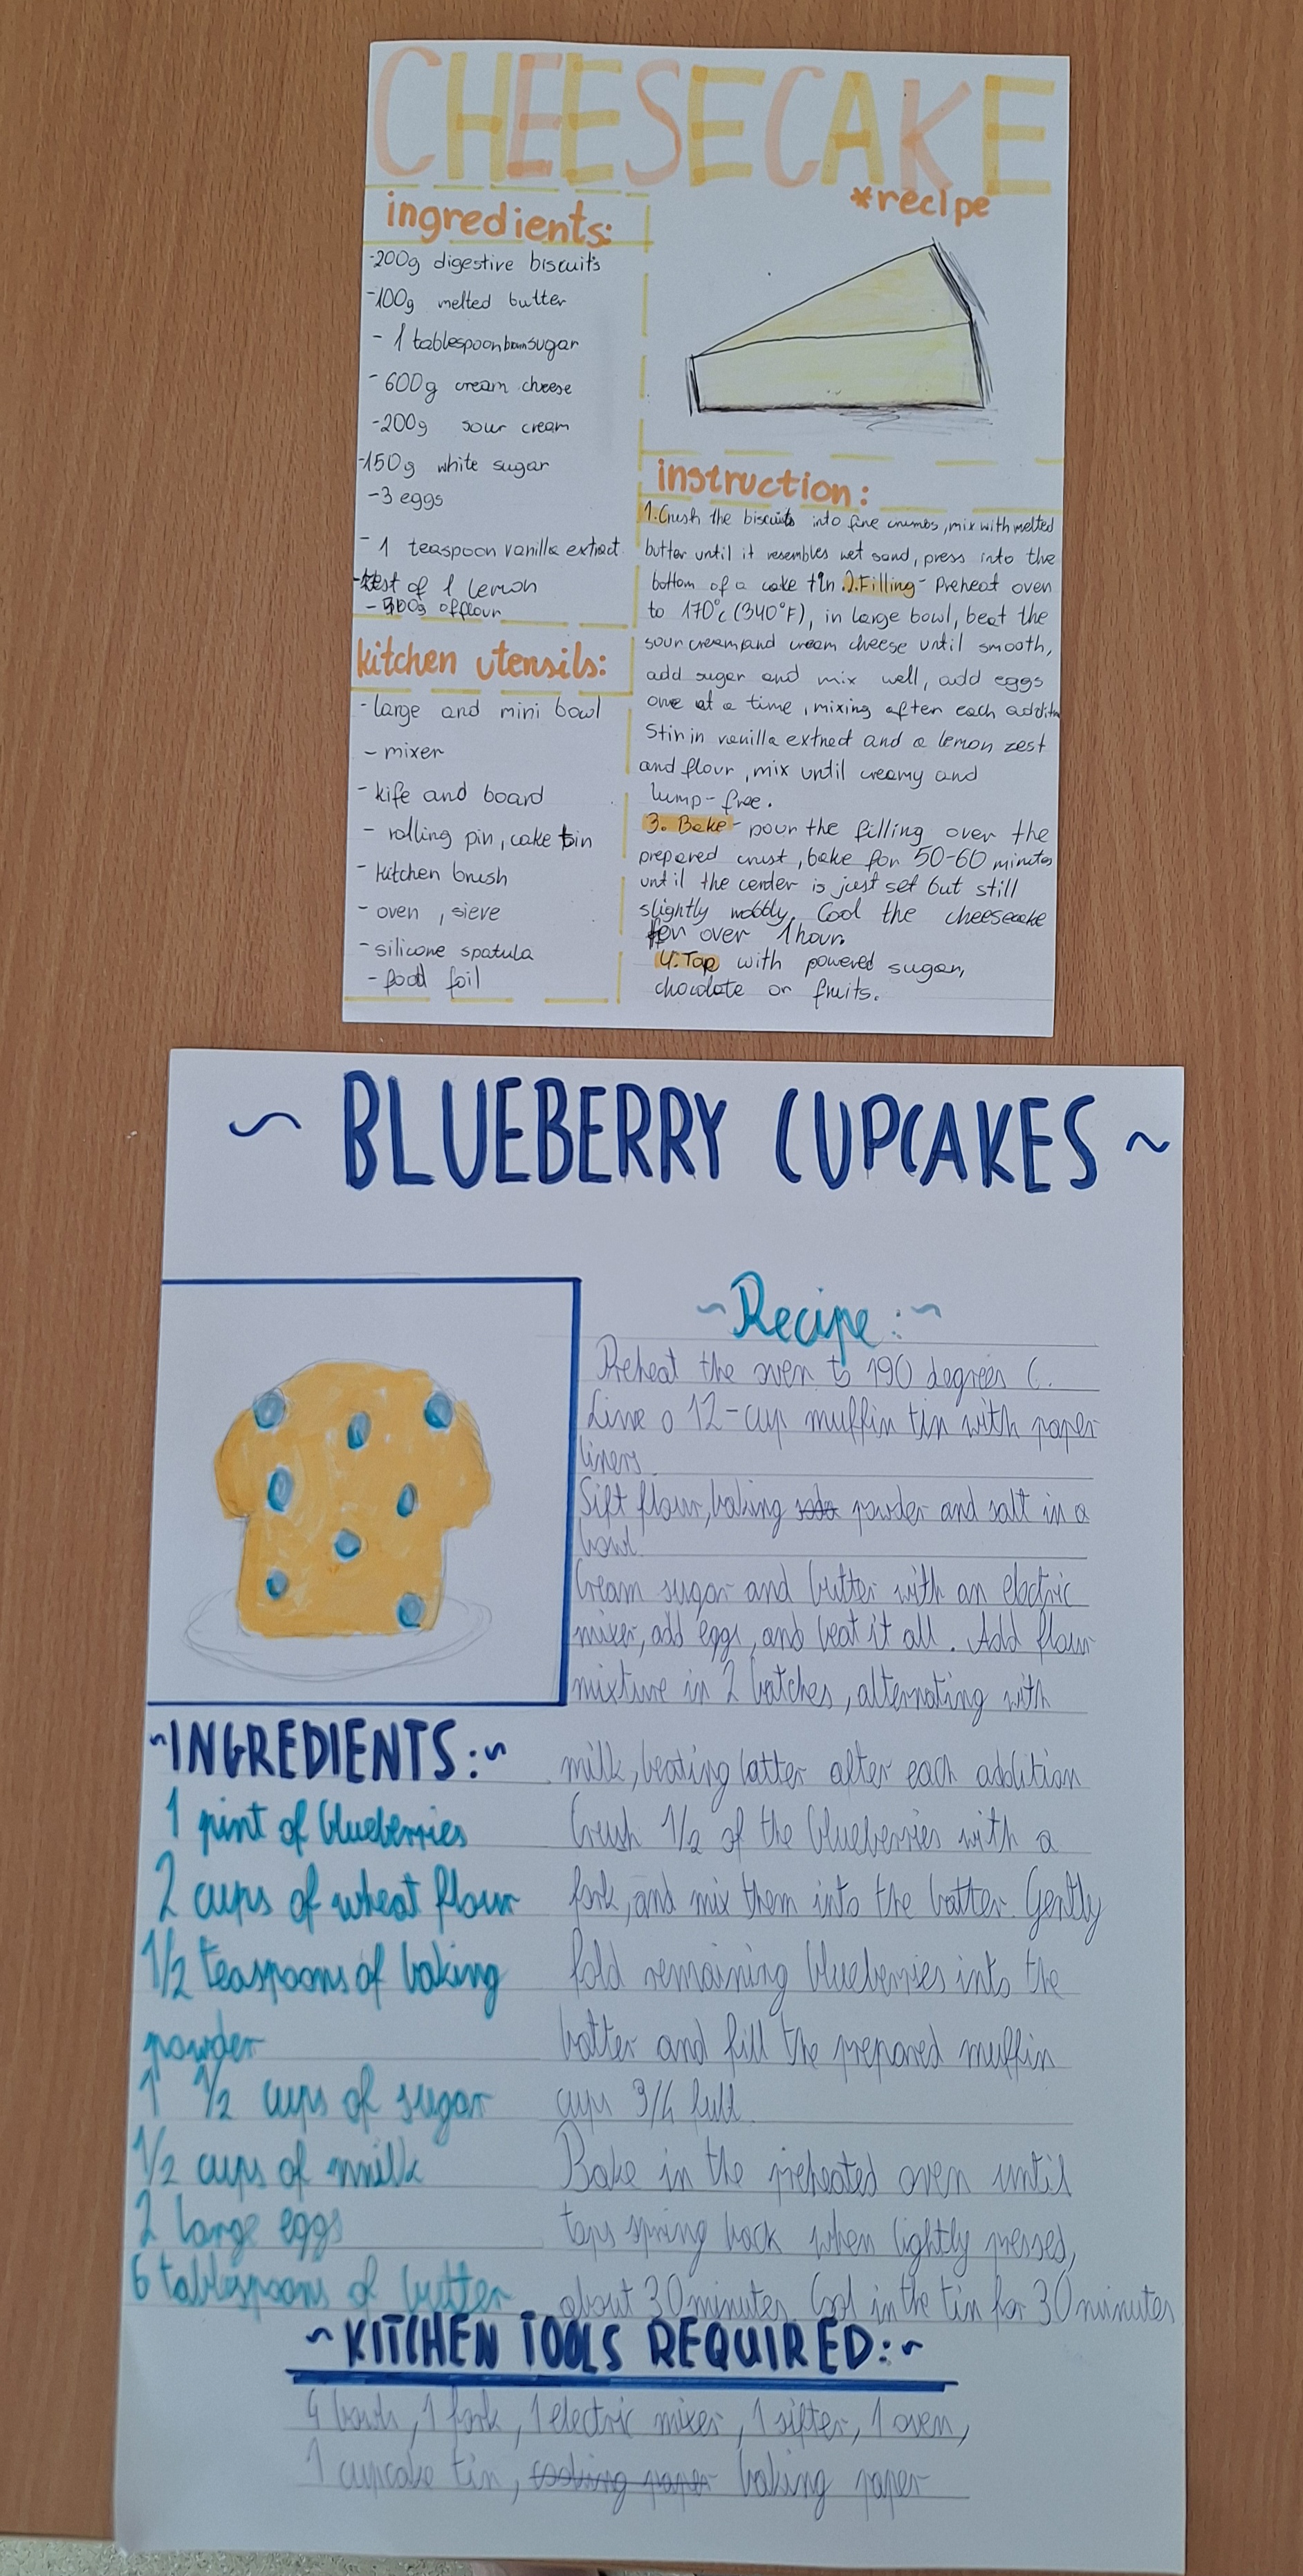 CHEESECAKE
*recipe
ingredients:
-200g digestive biscuits
-100g melted butter
- 1 tablespoon brown sugar
- 600g cream cheese
-200g sour cream
-150g white sugar
-3 eggs
- 1 teaspoon vanilla extract
-zest of 1 lemon
of flour
kitchen utensils:
-large and mini bowl
- mixer
- kife and board
- rolling pin, cake tin
- kitchen brush
- oven, sieve
-silicone spatula
- food foil
instruction:
1.Crush the biscuits into fine crumbs, mix with melted
butter until it resembles wet sand, press into the
bottom of a cake tin. 2.Filling - Preheat oven
to 170°c (340°F), in large bowl, beat the
sour cream and cream cheese until smooth,
add sugar and mix well, add eggs
one at a time, mixing after each additn
Stir in vanilla extract and a lemon zest
and flour, mix until creamy and
lump-free.
3. Bake - pour the filling over the
prepared crust, bake for 50-60 minutes
until the center is just set but still
slightly wobbly. Cool the cheesecake
for over 1 hour.
4.Top with powered sugar,
chocolate or fruits.
~ BLUEBERRY CUPCAKES ~
~Recipe:~
Preheat the oven to 190 degrees C.
Line a 12-cup muffin tin with paper
liners.
Sift flour, baking soda powder and salt in a
bowl.
Cream sugar and butter with an electric
mixer, add eggs, and beat it all. Add flour
mixture in 2 batches, alternating with
milk, beating batter after each addition
Crush 1/2 of the blueberries with a
fork, and mix them into the batter. Gently
fold remaining blueberries into the
batter and fill the prepared muffin
cups 3/4 full.
Bake in the preheated oven until
tops spring back when lightly pressed,
about 30 minutes. Cool in the tin for 30 minutes
~INGREDIENTS:~
1 pint of blueberries
2 cups of wheat flour
1/2 teaspoons of baking
powder
1 1/2 cups of sugar
1/2 cups of milk
2 large eggs
6 tablespoons of butter
~KITCHEN TOOLS REQUIRED:~
4 bowls, 1 fork, 1 electric mixer, 1 sifter, 1 oven,
1 cupcake tin, cooking paper baking paper